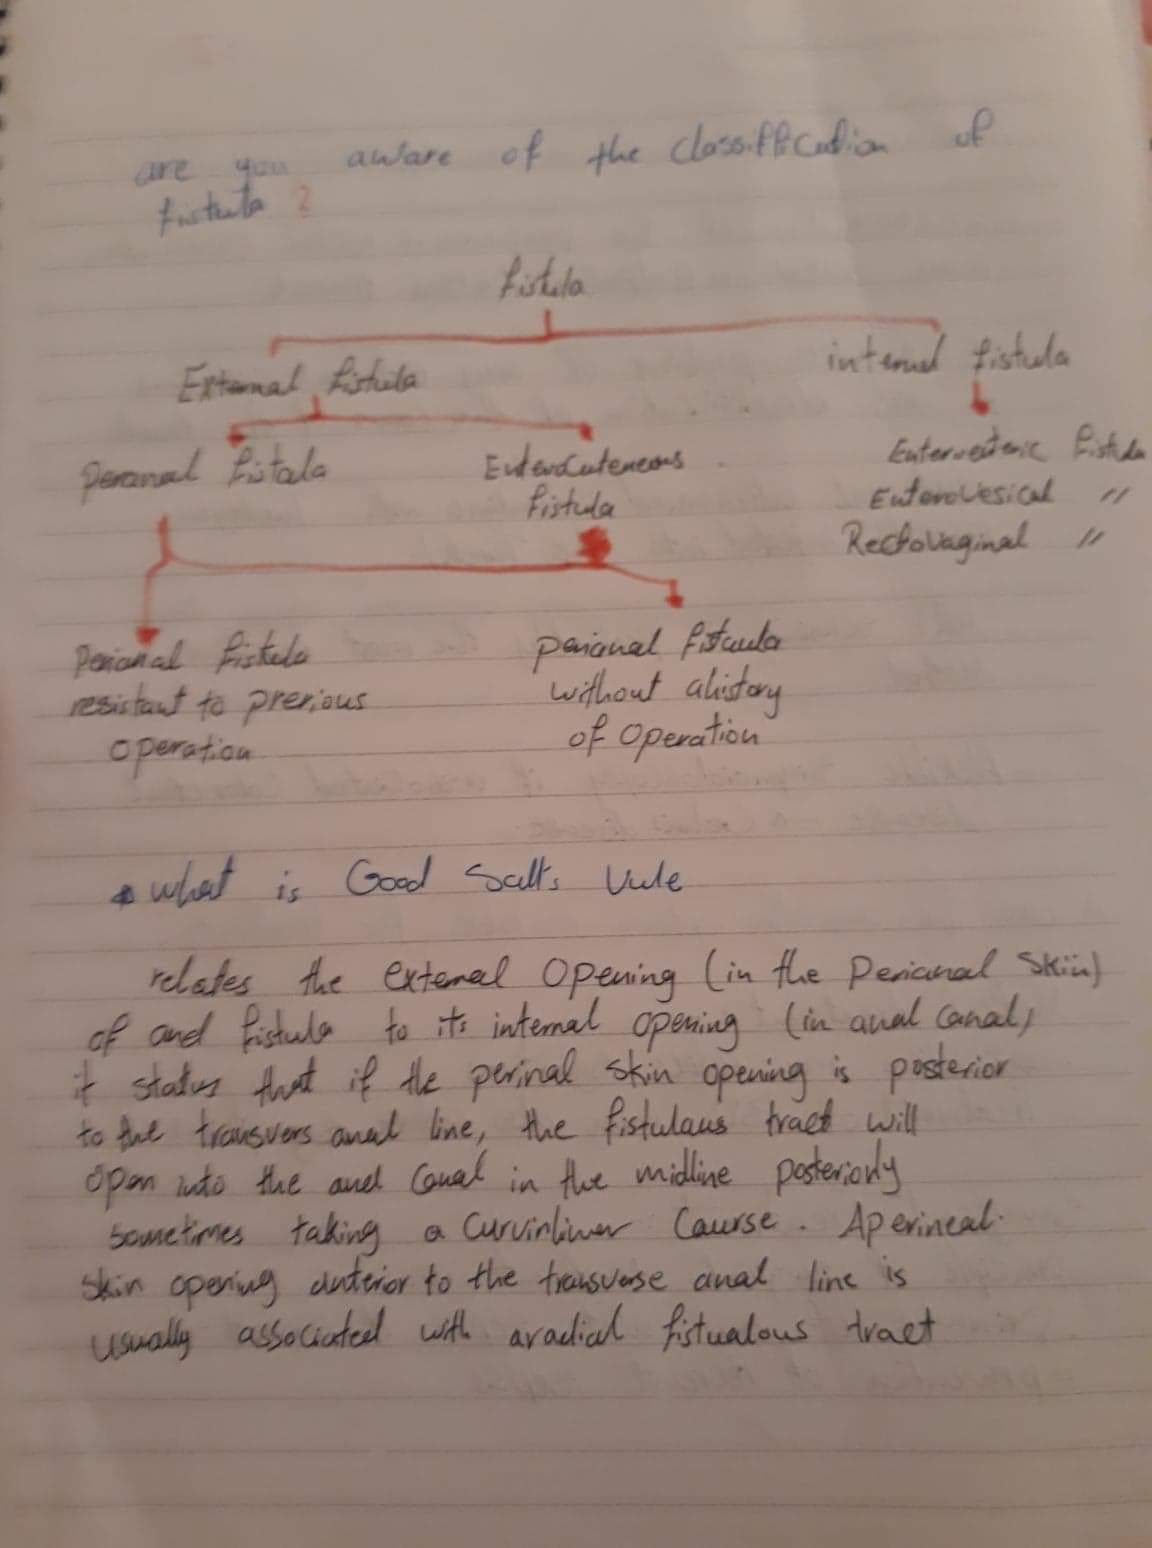 are you aware of the classiffication of
fistula ?
fistula
External fistula
internal fistula
peranal fistala
EnteroCuteneous
fistula
Enteroenteric fistula
EnteroVesical "
RectoVaginal "
Perianal fistula
resistant to previous
operation
perianal fistaula
without ahistory
of operation
* what is Good Salt's rule
relates the external opening (in the perianal skin)
of and fistula to its internal opening (in anal canal)
it status that if the perinal skin opening is posterior
to the transvers anal line, the fistulaus tract will
open into the anal Canal in the midline posteriorly
sometimes taking a curvinliner Caurse. Aperineal
skin opening anterior to the transverse anal line is
usually associated with aradial fistualous tract